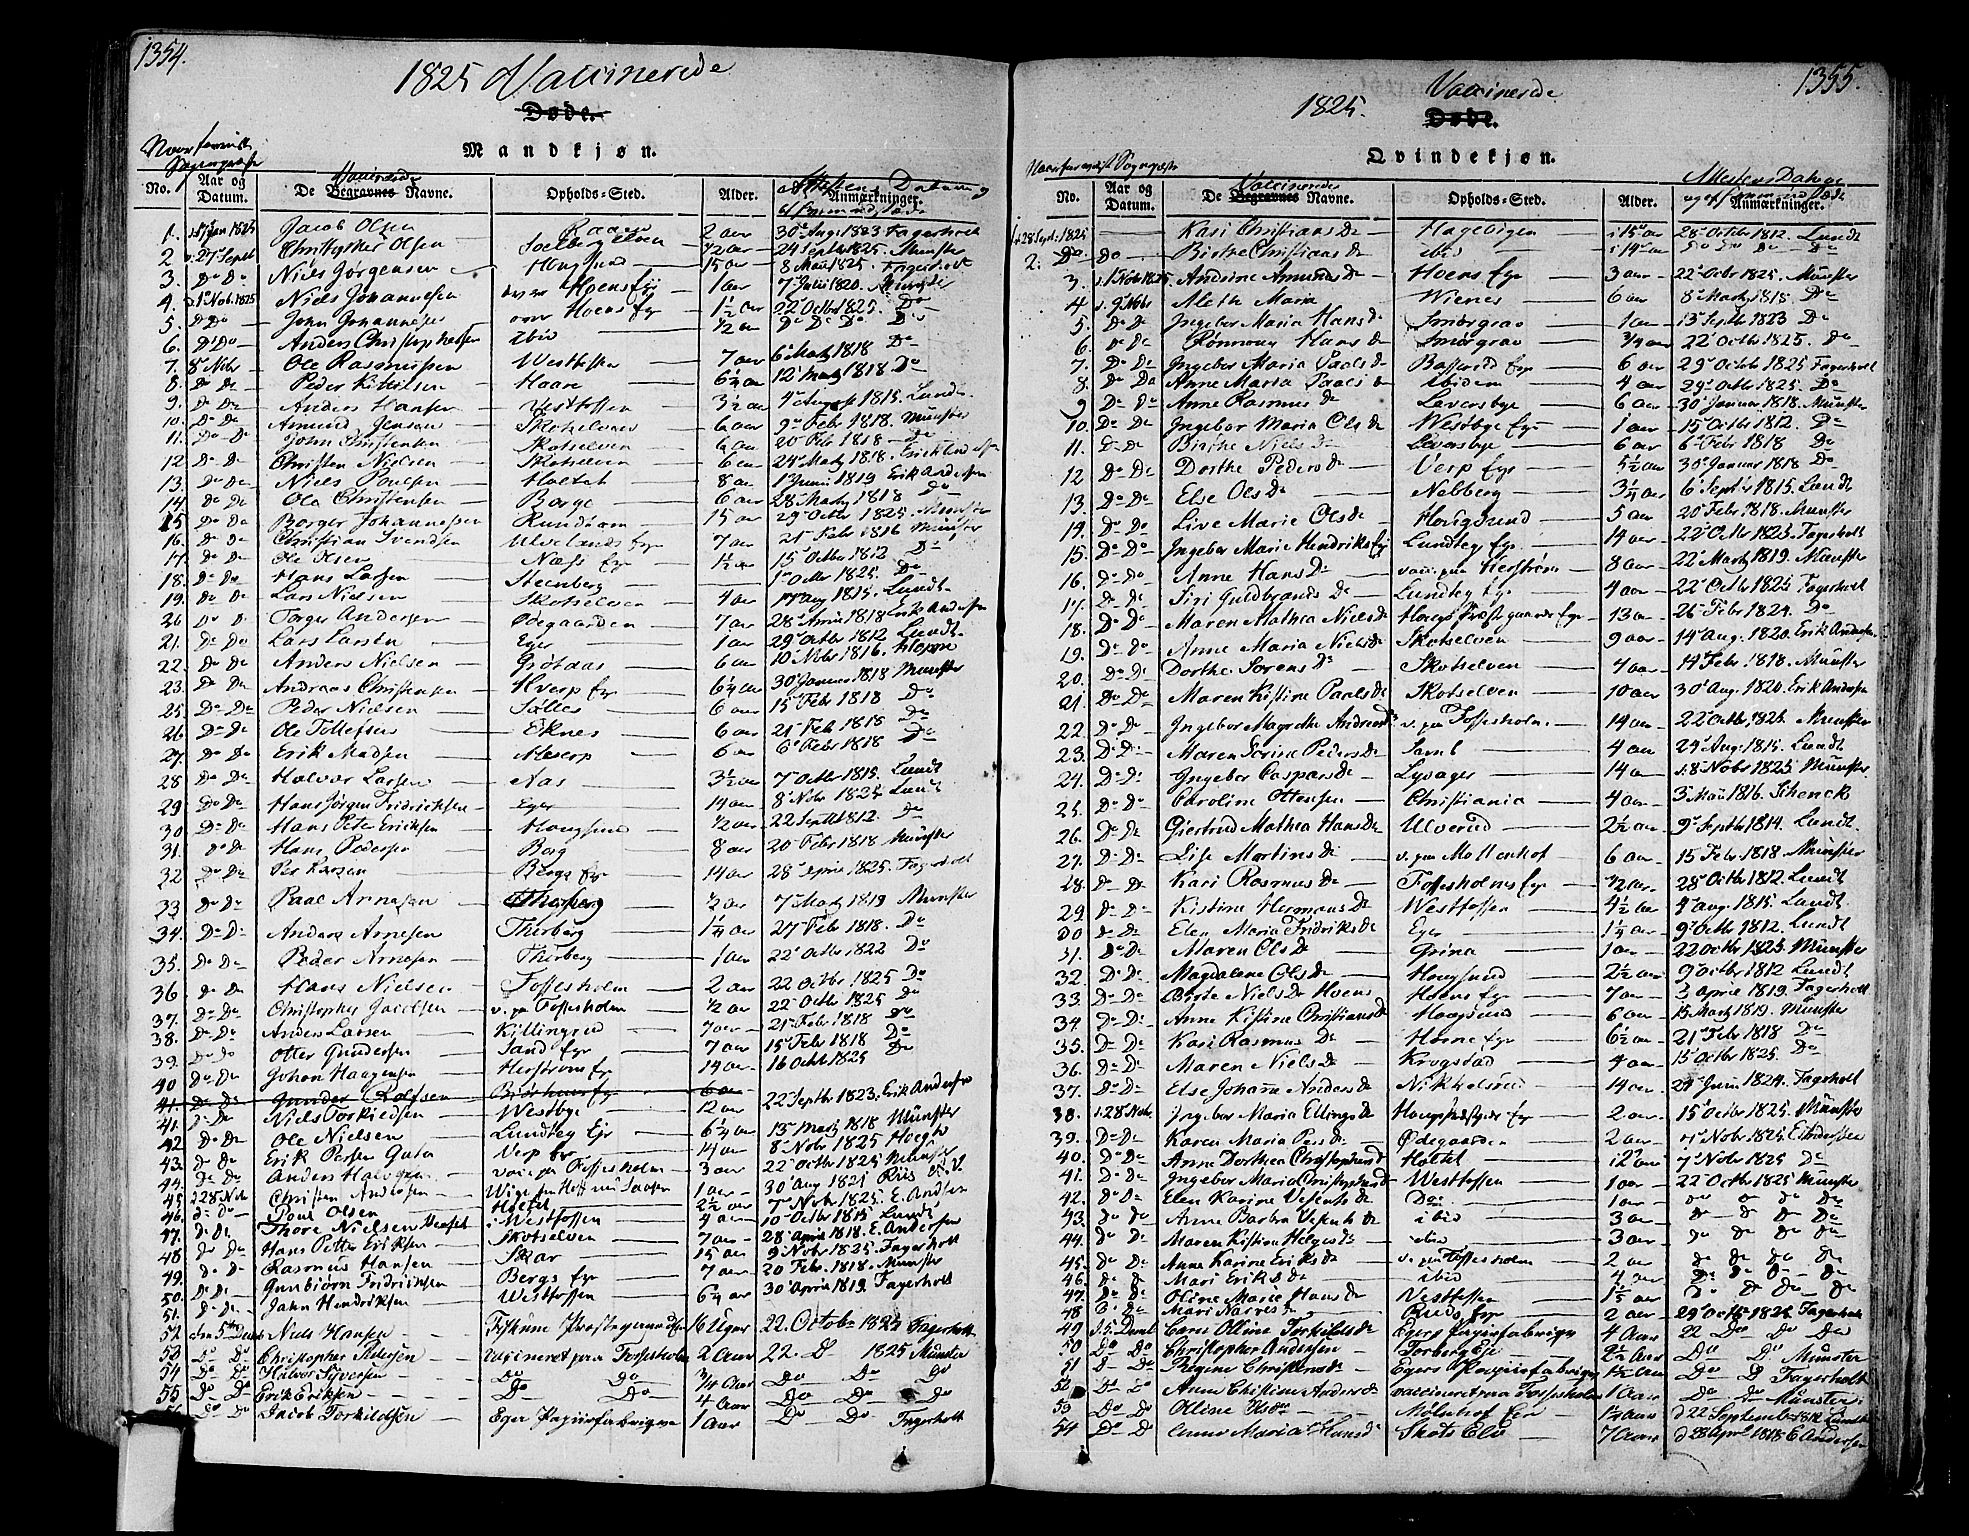 1354.
1825 Vaccinerede
Døde.
Mandkjøn.
No. Aar og Datum. De Begravnes Vaccinerede Navne. Opholds-Sted. Alder. Attestens Datum og Anmærkninger.
1. Jacob Olsen 2 aar 30 Aug. 1823 Fagerholt
2 27 Septb Christopher Olsen ½ aar 24 Septb 1825. Münster
3. Do Do Niels Jørgensen 15 aar 8 Maii 1825. Fagerholt
4. 1 Nob. 1825 Niels Johannesen over Hoens Eje 1 aar 7 Julii 1820. Münster
5. Do Do John Johannesen over Hoens Eje 1½ aar 22 Octobr 1825 Do
6. Do Do Anders Christophersen ibid ½ aar Do Do Do Do
7. 8 Nobr Ole Rasmussen Westfossen 7 aar 6 Martz 1818 Do
8. Do Do Peder Haare 6¼ aar 12 Martz 1818 Do
9. Do Do Anders Hansen Vestfossen 3½ aar 4 August 1815. Lundt
10. Do Do Amund Jensen Skotselven 6 aar 9 Febr 1818. Münster
11. Do Do John Christensen Skotselven 6 aar 20 Feb 1818 Do
12 Do Do Christen Nielsen Skotselven 6 aar 24 Martz 1818. Erick Andersen
13. Do Do Niels Poulsen 8 aar 1 Junii 1819 Erik Andersen
14. Do Do Ole Christensen Borge 6 aar 28 Martz 1818 Do
15 Do Do Borger Johannesen 15 aar 29 Octbr 1825. Münster
16. Do Do Christian Svendsen Ulvelands Eje 7 aar 21 Febr 1816 Münster
17. Do Do Ole Næss Eje 1½ aar 15 Octbr 1812 Do
18. Do Do Hans Larsen Steenberg 1 Octbr 1825. Do
19. Do Do Lars Nielsen Skotselven 4 aar Aug 1815. Lundt
20 Do Do Torger Andersen Ødegaarden 7 aar 28 1818 Erik Andersen
21. Do Do Lars Larsen Eger 1 aar 29 Octbr 1812 Lundt
22. Do Do Anders Nielsen 6 aar 10 Nobr 1816.
23. Do Do Andreas Christensen Hverp Eje 6¼ aar 30 Januar 1818 Münster
25. Do Do Peder Nielsen 6 aar 15 Febr 1818 Do
26 Do Do Ole Tollefsen Eknes 6 aar 21 Feb 1818 Do
27. Do Do Erik Madsen 6 aar 6 Febr 1818 Do
28 Do Do Halvor Larsen Aas 3½ aar 7 Octbr 1815. Lundt
29 Do Do Hans Jørgen Fridricksen Eger 14 aar 8 Nobr 1825 Lundt
30 Do Do Hans Peter Ericksen Hougsund ½ aar 22 Septb 1812. Do
31. Do Do Hans Pedersen Borg 8 aar 20 Febr 1818 Münster
32 Do Do Per Larsen Bergs Eje 14 aar 28 April 1825. Fagerholt
33 Do Do Paal Arnesen Thorberg ½ aar 7 Martz 1819 Münster
34. Do Do Anders Arnesen Thorberg 1¼ aar 27 Febr 1818. Do
35. Do Do Peder Arnesen Thorberg 1 aar 22 Octbr 1822 Do
36 Do Do Hans Nielsen Fossesholm 2 aar 22 Octbr 1825 Do
37. Do Do Christopher Jacobsen v. paa Fossesholm ½ aar 22 Octbr 1825 Do
38. Do Do Anders Larsen Killingrud 7 aar 21 Febr 1818 Do
39. Do Do Otter Gundersen Sand Eje 7 aar 15 Febr 1818 Do
40 Do Do Johan Haagensen Herstrøm Eje 14 aar 16 Octbr 1825 Do
41. Do Do Gunder Rolfsen 6 aar
41. Do Do Niels Torkildsen Westbye 12 aar 22 Septbr 1823. Erik Andersen
42 Do Do Ole Nielsen Lundteg Eje 6¼ aar 13 Martz 1818 Münster
43. Do Do Erik Persen Verp Eje 14 aar 8 Nobr 1825
44. Do Do Anders Halvorsen vacc. paa Fossesholm 3 aar 22 Octbr 1825 Münster
45 d 28 Nob. Christen Andersen 1 aar 30 Aug 1825 Riis
46. Do Do Poul Olsen 2½ aar 7 Nobr. 1825. E. Andersen
47. Do Do Thore Nielsen i Westfossen 4 aar 10 Octbr 1815 Lundt
48 Do Do Hans Petter Eriksen Skotselven 7 aar 28 April 1818. E. Andersen
49. Do Do Rasmus Hansen Skar 15 aar 9 Nobr 1825. Fagerholt
50. Do Do Gunbiørn Fridrichsen Bergs Eje 7 aar 20 Febr. 1818. Münster
51. Do Do John Hendriksen Westfossen 6¼ aar 30 April 1819. Fagerholt
52 den 5te Decemb Niels Hansen Fiskum Præstegaards Eje 16 Uger 22. October 1825 Fagerholt
53 Do Do Christopher Pedersen Vaccineret paa Fossesholm 2 Aar 22. D 1825 Münster
54 Do Do Halvor Syversen Do Do 3/4 Aar Do Do Do
55 Do Do Erik Eriksen Do Do 4 Aar Do Do Do
56 Do Do Jacob Torkildsen Eger Papiirfabrique 1 Aar Do Do Fagerholt
1355.
1825. Vaccinerede
Døde.
Qvindekjøn.
No. Aar og Datum. De Begravnes Vaccinerede Navne. Opholds-Sted. Alder. Attestens Datum og Anmærkninger.
1 28 Sept. 1825 Kari Christians D Hagebigen 15 aar 28 Octobr 1812. Lundt
2. Do Do Birthe Christians D ibid 14 aar Do Do Do Do
3 1 Nob 1825 Andrine Amunds D Hoens Eje 3 aar 22 Octbr 1825. Münster
4 9 Nobr Aleth Maria Wienes 6 aar 8 Martz 1818 Do
5. Do Do Ingebor Maria Hans D Smørgrav 1 aar 13 Septb 1823 Do
6. Do Do Rønnoug Hans D Smørgrav 3/4 aar 22 Octbr 1825. Do
7. Do Do Ingebor Maria Paals D Basserud Eje 6 aar 29 Octbr 1825 Fagerholt
8. Do Do Anne Maria Paals D ibidem 4 aar 29 Octbr 1825. Do
9 Do Do Anne Rasmus D Laversbye 6 aar 30 Januar 1818. Münster
10. Do Do Ingebor Maria Ols D Westbye Eje 1 aar 15 Octbr 1812. Do
11. Do Do Birthe Niels D Leversbye 6 aar 6 Febr 1818 Do
12 Do Do Dorthe Peders D Verp Eje 5½ aar 30 Januar 1818 Do
13. Do Do Else Ols D Nebberg 3¼ aar 6 Septbr 1815. Lundt
14. Do Do Live Marie Ols D Hougsund 5 aar 20 Febr 1818. Münster
15. Do Do Ingebor Marie Hendriks D Lundteg Eje 14 aar 22 Octbr 1825. Fagerholt
16. Do Do Anne Hans D vacc. paa Herstrøm 8 aar 22 Martz 1819. Münster
17. Do Do Siri Guldbrands D Lundteg Eje 4 aar 22 Octbr 1825 Fagerholt
18. Do Do Maren Mathea Niels D Hougs Præstegaards Eje 13 aar 26 Febr 1824. Do
19. Do Do Anne Maria Niels D Skotselven 9 aar 14 Aug. 1820. Erik Andersen
20. Do Do Dorthe Sorens D Skotselven 4 aar 14 Febr 1818. Münster
21 Do Do Maren Kistine Paals D Skotselven 10 aar 30 Aug. 1820. Erik Andersen
22 Do Do Ingebor Magrethe Andreas D v. paa Fossesholm. 14 aar 22 Octbr 1825. Münster
23. Do Do Maren Serina Peders D 4 aar 24 Aug. 1815. Lundt
24. Do Do Ingebor Caspars D Lyvager 14 aar 8 Nobr 1825 Münster
25. Do Do Caroline Ottensen Christiania 4 aar 3 Maii 1816. Schenck
26. Do Do Giertrud Mathea Hans D Ulverud 2½ aar 9 Septb 1814. Lundt
27. Do Do Lise Martins D v. paa Mollenhof 6 aar 15 Febr 1818. Münster
28. Do Do Kari Rasmus D Fossesholms Eje ½ aar 28 Octbr 1812. Lundt
29 Do Do Kistine Hermans D Westfossen 4½ aar 4 Aug. 1815. Lundt
30 Do Do Elen Maria Fridriks D Eger 1¼ aar 9 Octbr 1812. Lundt
31. Do Do Maren Ols D Grina 1 aar 22 Octbr 1825. Münster
32. Do Do Magdalene Ols D Hougsund 2½ aar 9 Octbr 1812 Lundt
33 Do Do Birte Niels D Hoens Hoens Eje 7 aar 3 April 1819. Fagerholt
34 Do Do Anne Kistine Christians D Hougsund 6 aar 15 Martz 1819. Münster
35. Do Do Kari Rasmus D Horne Eje 6½ aar 21 Febr 1818 Do
36. Do Do Maren Niels D Krogstad 4 aar 15 Octbr 1825. Do
37. Do Do Else Johanne Anders D 14 aar 29 Juni 1824. Fagerholt
38. 28 Nobr. Ingebor Maria Ellings D Hougs Præstgjelds Eje 2 aar 15 Octbr 1825. Münster
39. Do Do Karen Maria Pers D Ødegaarden 2 aar 4 Nobr 1825. E Andersen
40. Do Do Anne Dorthea Christophers D Holtet 12 aar 7 Nobr 1825 Do
41. Do Do Ingebor Maria Christophers D Westfossen 1 aar 22 Octbr 1825 Münster
42. Do Do Elen Karine D Do 1 aar Do Do Do Do
43. Do Do Anne Barbra D ibid 3 aar Do Do Do Do
44. Do Do Maren Kistina Helges D ibid 3 aar Do Do Do Do
45 Do Do Anne Karine Eriks D v. paa Fossesholm 2 aar Do Do Do Do
46 Do Do Mari Eriks D ibid 4 aar Do Do Do Do
47. Do Do Oline Marie Hans D Vestfossen aar Do Do Do Do
48 Do Do Mari D Ruds Eje 2 aar 29 Octbr 1825 Fagerholt
49 5. Decemb Olline Torkilds D Egers Papiirfabrique 4 Aar 22 Do Do Do
50 Do Do Christopher Andersen Torberg Eje 2½ Aar Do Do Münster
51 Do Do Regine Christens D Egers Papiirfabrique 1½ Aar Do D Fagerholt
52 Do Do Anne Christine Anders D vaccineret paa Fossesholm 1 Aar Do Do Münster
53 Do Do Olline Mølshof Eje 1½ Aar d 22 September 1812 Lundt
54 Do Do Anne Maria Hans D Skots Elv 7 Aar d 28 Apr. 1818 E Andersen